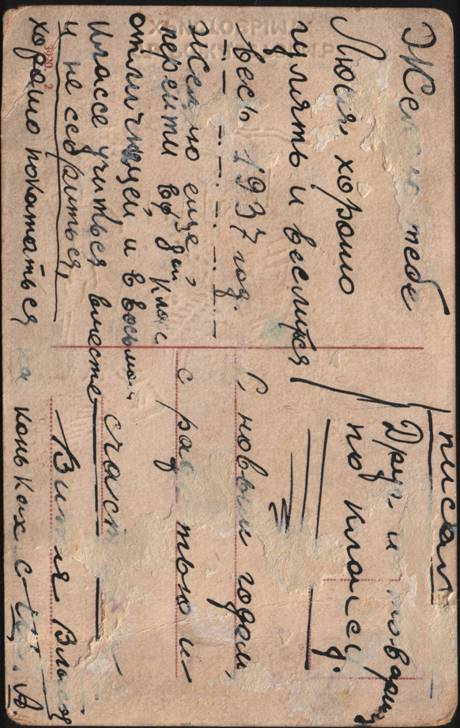 Желаю тебе
Люся, хорошо
гулять и веселится
весь 1937 год.
Желаю еще,
перейти в 8й клас
отличницей, и в восьмом
классе учиться вместе
и не ссориться,
хорошо покататься на коньках с
писал
Друг и товарищ
по классу.
С новым годом,
с радостью и
счаст
Витя